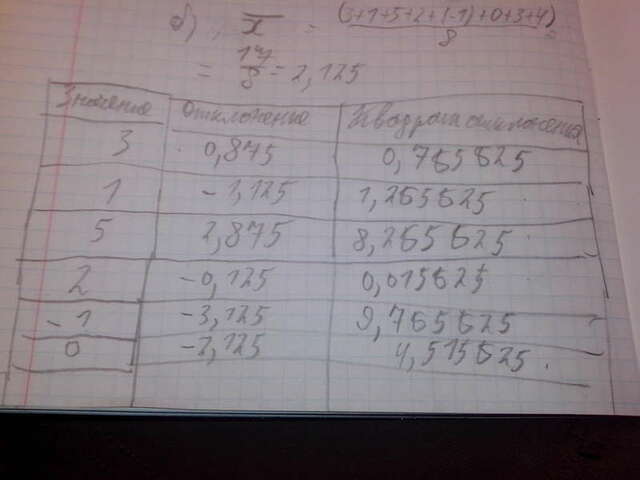 б) x̄ = (3+1+5+2+(-1)+0+3+4) / 8 =
= 17/8 = 2,125
Значение Отклонение Квадрат отклонения
3 0,875 0,765625
1 -1,125 1,265625
5 2,875 8,265625
2 -0,125 0,015625
-1 -3,125 9,765625
0 -2,125 4,515625